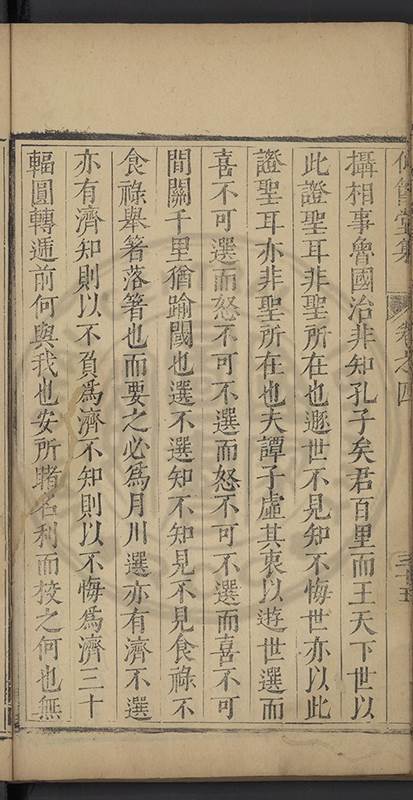 堂集　卷之四　三十五
攝相事魯國治非知孔子矣君百里而王天下世以
此證聖耳非聖所在也遯世不見知不悔世亦以此
證聖耳亦非聖所在也夫譚子虛其衷以遊世選而
喜不可選而怒不可不選而怒不可不選而喜不可
間關千里猶踰閾也選不選知不知見不見食祿不
食祿舉箸落箸也而要之必為月川選亦有濟不選
亦有濟知則以不負為濟不知則以不悔為濟三十
輻圓轉遞前何與我也安所賭名利而挍之何也無